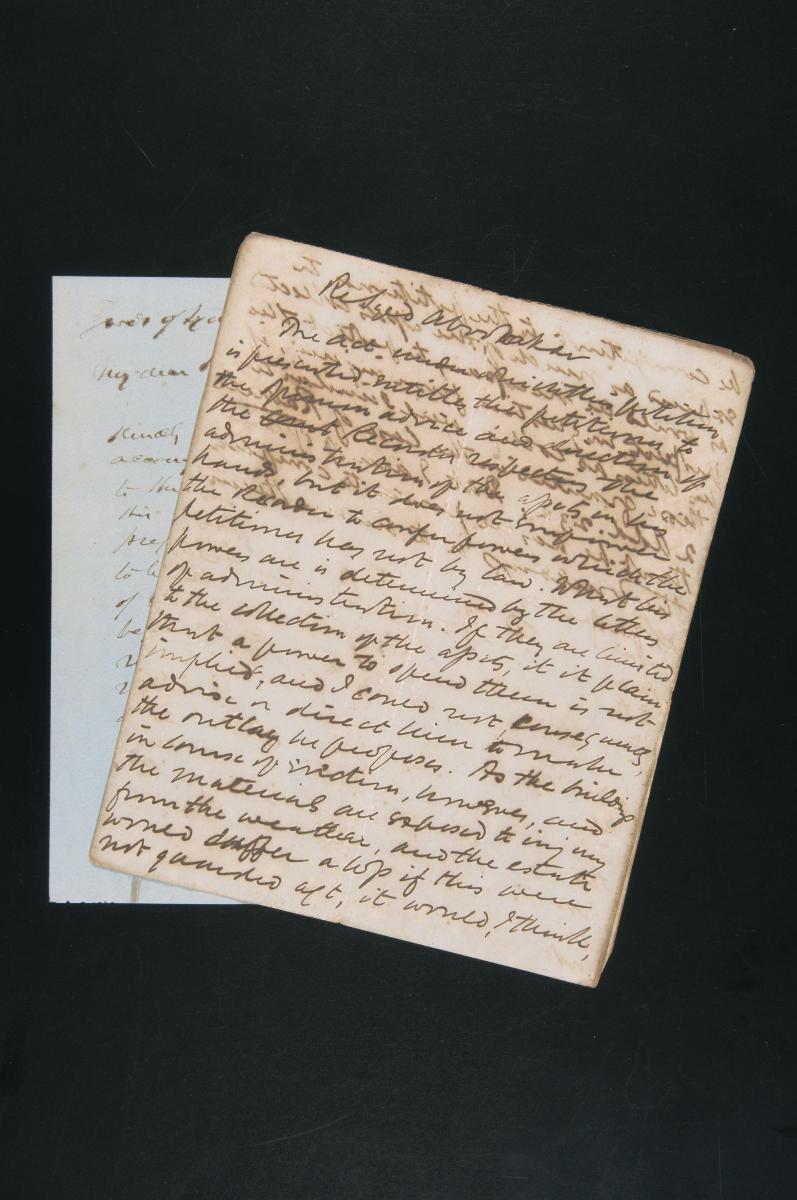 My dear
Kindly
to the
to be
of
Re Syed Abubakar
The act under which this petition
is presented entitles the petitioner to
the opinion advice and direction of
the Court Recorder respecting the
administration of the assets in his
hands, but it does not empower
the Recorder to confer powers which the
petitioner has not by law. What his
powers are is determined by the letters
of administration. If they are limited
to the collection of the assets, it is plain
that a power to spend them is not
implied, and I could not, consequently,
advise or direct him to make
the outlay he proposes. As the building
in course of erection, however, and
the materials are exposed to injury
from the weather, and the estate
would suffer a loss if this were
not guarded agt, it would, I think,